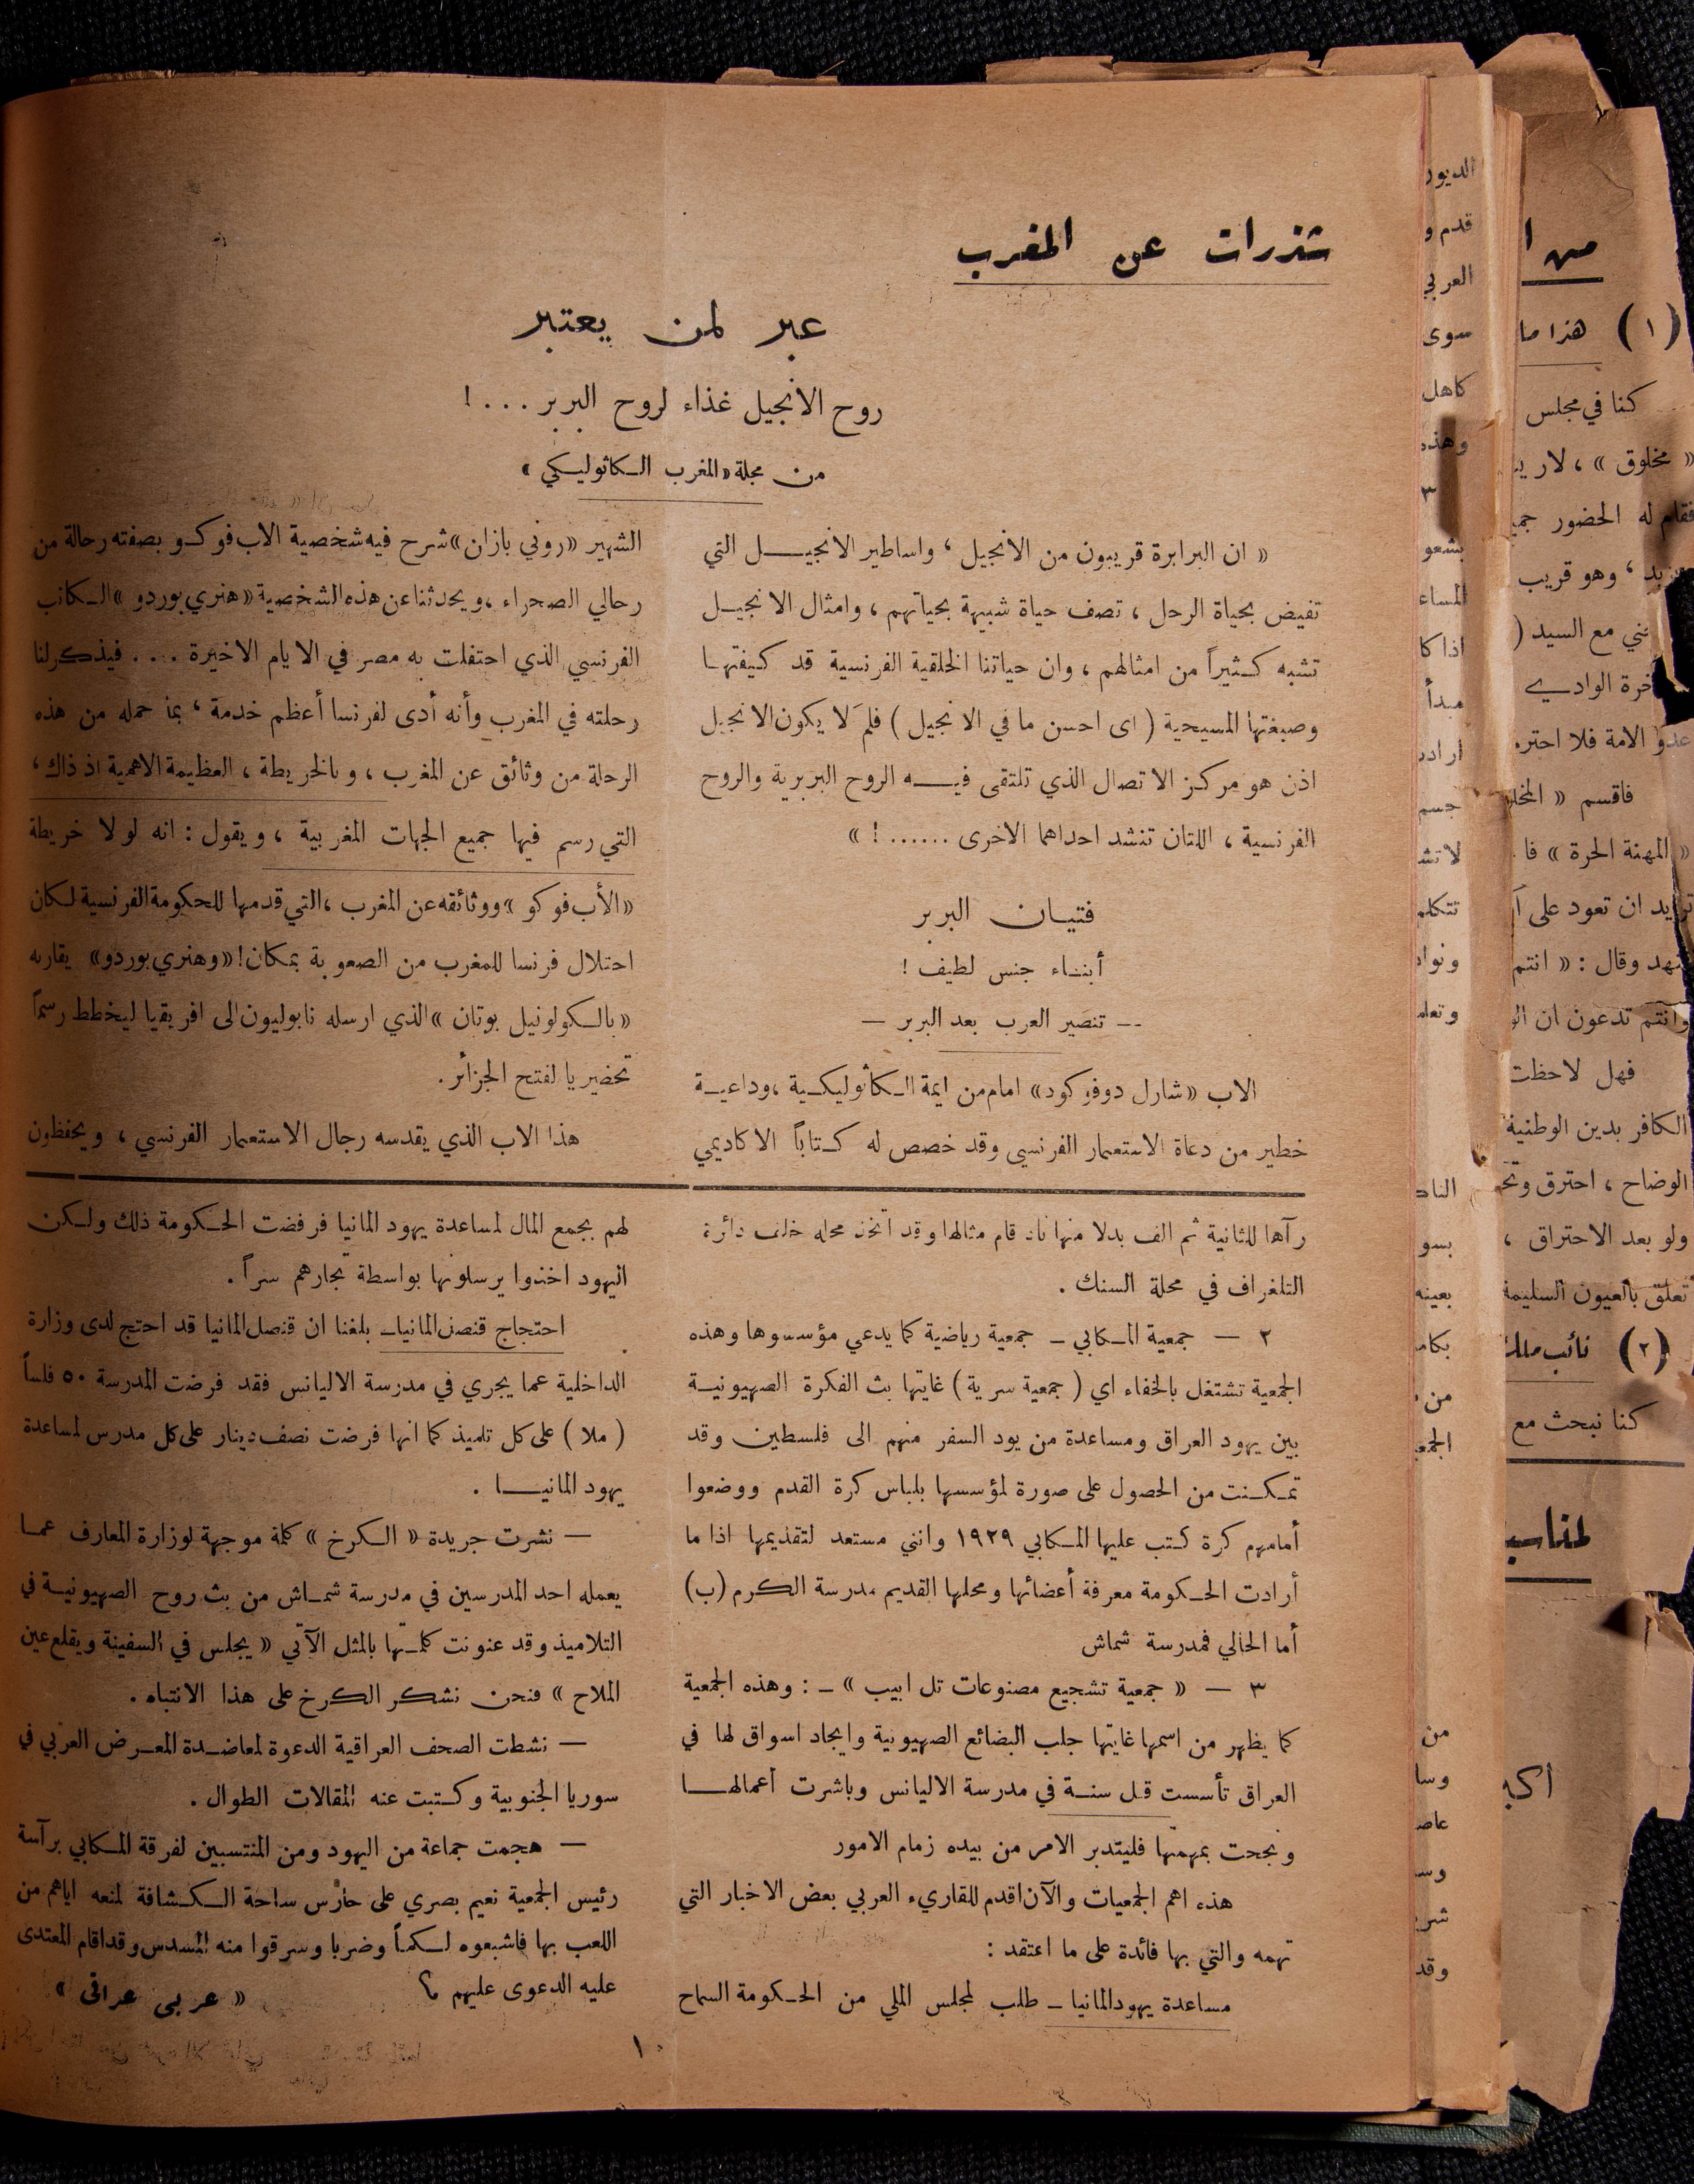 شذرات عن المغرب
عبر لمن يعتبر
روح الانجيل غذاء لروح البربر . . . !
من مجلة «المغرب الكاثوليكي»
« ان البرابرة قريبون من الانجيل ، واساطير الانجيل التي
تفيض بحياة الرحل ، تصف حياة شبيهة بحياتهم ، وامثال الانجيل
تشبه كثيراً من امثالهم ، وان حياتنا الخلقية الفرنسية قد كيفتها
وصبغتها المسيحية ( اى احسن ما في الانجيل ) فلمَ لا يكون الانجيل
اذن هو مركز الاتصال الذي تلتقى فيه الروح البربرية والروح
الفرنسية ، اللتان تنشد احداهما الاخرى ...... ! »
فتيان البربر
أبناء جنس لطيف !
-- تنصير العرب بعد البربر —
الاب «شارل دوفوكود» امام من ايمة الكاثوليكية ، وداعية
خطير من دعاة الاستعمار الفرنسي وقد خصص له كتاباً الاكاديمي
الشهير «روني بازان» شرح فيه شخصية الاب فوكو بصفته رحالة من
رحالي الصحراء ، ويحدثنا عن هذه الشخصية «هنري بوردو» الكاتب
الفرنسي الذي احتفلت به مصر في الايام الاخيرة . . . فيذكر لنا
رحلته في المغرب وأنه أدى لفرنسا أعظم خدمة ، بما حمله من هذه
الرحلة من وثائق عن المغرب ، وبالخريطة ، العظيمة الاهمية اذ ذاك ،
التي رسم فيها جميع الجهات المغربية ، ويقول : انه لولا خريطة
«الأب فوكو» ووثائقه عن المغرب ، التي قدمها للحكومة الفرنسية لكان
احتلال فرنسا للمغرب من الصعوبة بمكان! «وهنري بوردو» يقارنه
«بالكولونيل بوتان» الذي ارسله نابوليون الى افريقيا ليخطط رسماً
تحضيريا لفتح الجزائر .
هذا الاب الذي يقدسه رجال الاستعمار الفرنسي ، ويحفظون
رآها للثانية ثم الف بدلا منها ناد قام مثالها وقد اتخذ محله خلف دائرة
التلغراف في محلة السنك .
٢ — جمعية المكابي — جمعية رياضية كما يدعي مؤسسوها وهذه
الجمعية تشتغل بالخفاء اي ( جمعية سرية ) غايتها بث الفكرة الصهيونية
بين يهود العراق ومساعدة من يود السفر منهم الى فلسطين وقد
تمكنت من الحصول على صورة لمؤسسها بلباس كرة القدم ووضعوا
أمامهم كرة كتب عليها المكابي ١٩٢٩ وانني مستعد لتقديمها اذا ما
أرادت الحكومة معرفة أعضائها ومحلها القديم مدرسة الكرم (ب)
أما الحالي فمدرسة شماش
٣ — « جمعية تشجيع مصنوعات تل ابيب » — : وهذه الجمعية
كما يظهر من اسمها غايتها جلب البضائع الصهيونية وايجاد اسواق لها في
العراق تأسست قبل سنة في مدرسة الاليانس وباشرت أعمالها
ونجحت بمهمتها فليتدبر الامر من بيده زمام الامور
هذه اهم الجمعيات والآن اقدم للقاريء العربي بعض الاخبار التي
تهمه والتي بها فائدة على ما اعتقد :
مساعدة يهود المانيا — طلب لمجلس الملي من الحكومة السماح
لهم بجمع المال لمساعدة يهود المانيا فرفضت الحكومة ذلك ولكن
اليهود اخذوا يرسلونها بواسطة تجارهم سراً .
احتجاج قنصل المانيا — بلغنا ان قنصل المانيا قد احتج لدى وزارة
الداخلية عما يجري في مدرسة الاليانس فقد فرضت المدرسة ٥٠ فلساً
( ملا ) على كل تلميذ كما انها فرضت نصف دينار على كل مدرس لمساعدة
يهود المانيا .
— نشرت جريدة « الكرخ » كلمة موجهة لوزارة المعارف عما
يعمله احد المدرسين في مدرسة شماش من بث روح الصهيونية في
التلاميذ وقد عنونت كلمتها بالمثل الآتي « يجلس في السفينة ويقلع عين
الملاح » فنحن نشكر الكرخ على هذا الانتباه .
— نشطت الصحف العراقية الدعوة لمعاضدة المعرض العربي في
سوريا الجنوبية وكتبت عنه المقالات الطوال .
— هجمت جماعة من اليهود ومن المنتسبين لفرقة المكابي برآسة
رئيس الجمعية نعيم بصري على حارس ساحة الكشافة لمنعه اياهم من
اللعب بها فاشبعوه لكماً وضربا وسرقوا منه المسدس وقد اقام المعتدى
عليه الدعوى عليهم ؟
« عربى عراقى »
١٠
الديور
قدم و
العربي
سوى
كاهل
وهذه
٣
المساء
اذا كا
مبدأ
اراد
جسم
لا تش
تتكلم
ونوا
بسو
بعينه
بكام
من
الجمع
من
وسا
عاص
وسـ
شر
وقد
من ا
(١) هذا ما
كنا في مجلس
« مخلوق » ، لا ري
فقام له الحضور جمي
، وهو قريب
ني مع السيد (
خرة الوادي
عدو الامة فلا احتر
فاقسم « المخلو
« المهنة الحرة » فا
تريد ان تعود على آ
وقال : « انتم
وانتم تدعون ان الو
فهل لاحظت
الكافر بدين الوطنية
الوضاح ، احترق وتح
ولو بعد الاحتراق ،
تعلق بالعيون السليمة
(٢) نائب ملك
كنا نبحث مع
لمناسب
اكبر